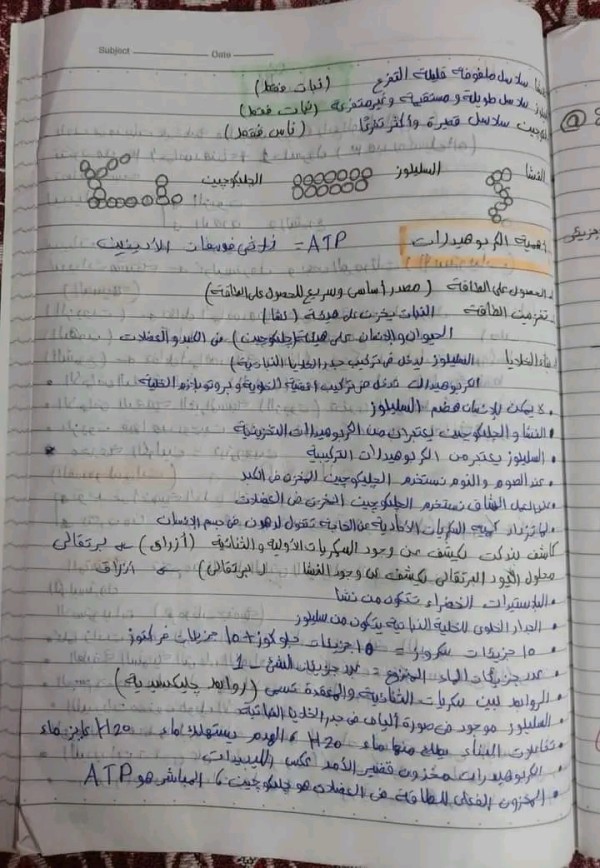 Subject Date
النشا سلاسل ملفوفة قليلة التفرع (نبات فقط)
سلاسل طويلة ومستقيمة وغير متفرعة (نبات فقط)
سلاسل قصيرة وأكثر تفرعًا (ناس فقط)
النشا السليلوز الجليكوجين
أهمية الكربوهيدرات ATP = فوسفات الأدينين
الحصول على الطاقة (مصدر أساسي وسريع للحصول على الطاقة)
تخزين الطاقة النبات يخزن على هيئة (نشا)
الحيوان والإنسان على هيئة (جليكوجين) في الكبد والعضلات
بناء الخلايا السليلوز يدخل في تركيب جدر الخلايا النباتية
الكربوهيدرات تدخل في تركيب أغشية الخلوية وبروتوبلازم الخلية
• لا يمكن للإنسان هضم السليلوز
• النشا والجليكوجين يعتبران من الكربوهيدرات التخزينية
• السليلوز يعتبر من الكربوهيدرات التركيبية
• عند الصوم والنوم نستخدم الجليكوجين المخزن في الكبد
• عند العمل الشاق نستخدم الجليكوجين المخزن في العضلات
• لما تزداد كمية السكريات الأحادية عن الحاجة تتحول لدهون في جسم الإنسان
كاشف بندكت نكشف عن وجود السكريات الأولية والثنائية (أزرق) ← برتقالي
محلول اليود البرتقالي نكشف عن وجود النشا (برتقالي) ← أزرق
• البلاستيدات الخضراء تتكون من نشا
• الجدار الخلوي للخلية النباتية يتكون من سليلوز
• 10 جزيئات سكروز = 10 جزيئات جلوكوز + 10 جزيئات فركتوز
• عدد جزيئات الماء المنزوع = عدد جزيئات الشئ - 1
• الروابط لبين سكريات الثنائية والمعقدة تسمى (روابط جليكسيدية)
• السليلوز موجود في صورة ألياف في جدر الخلايا النباتية
• تفاعلات البناء يطلع منها ماء H20 ، الهدم يستهلك ماء H20 عايز ماء
• الكربوهيدرات مخزون قصير الأمد عكس الليبيدات
• المخزون الفعلي للطاقة في العضلات هو جليكوجين، المباشر هو ATP